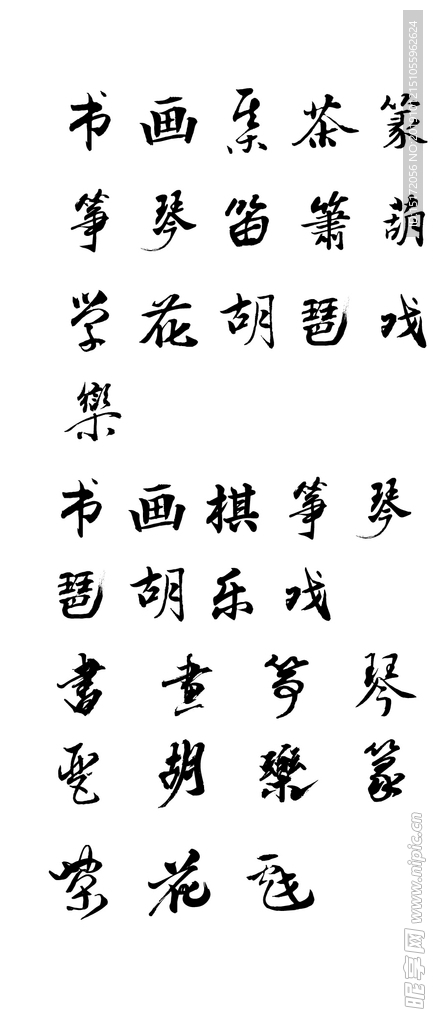 书 画 棊 茶 篆
筝 琴 笛 箫 葫
学 花 胡 琶 戏
樂
书 画 棋 筝 琴
琶 胡 乐 戏
書 畫 筝 琴
琵 胡 樂 篆
茶 花 戏
昵享网 www.nipic.cn